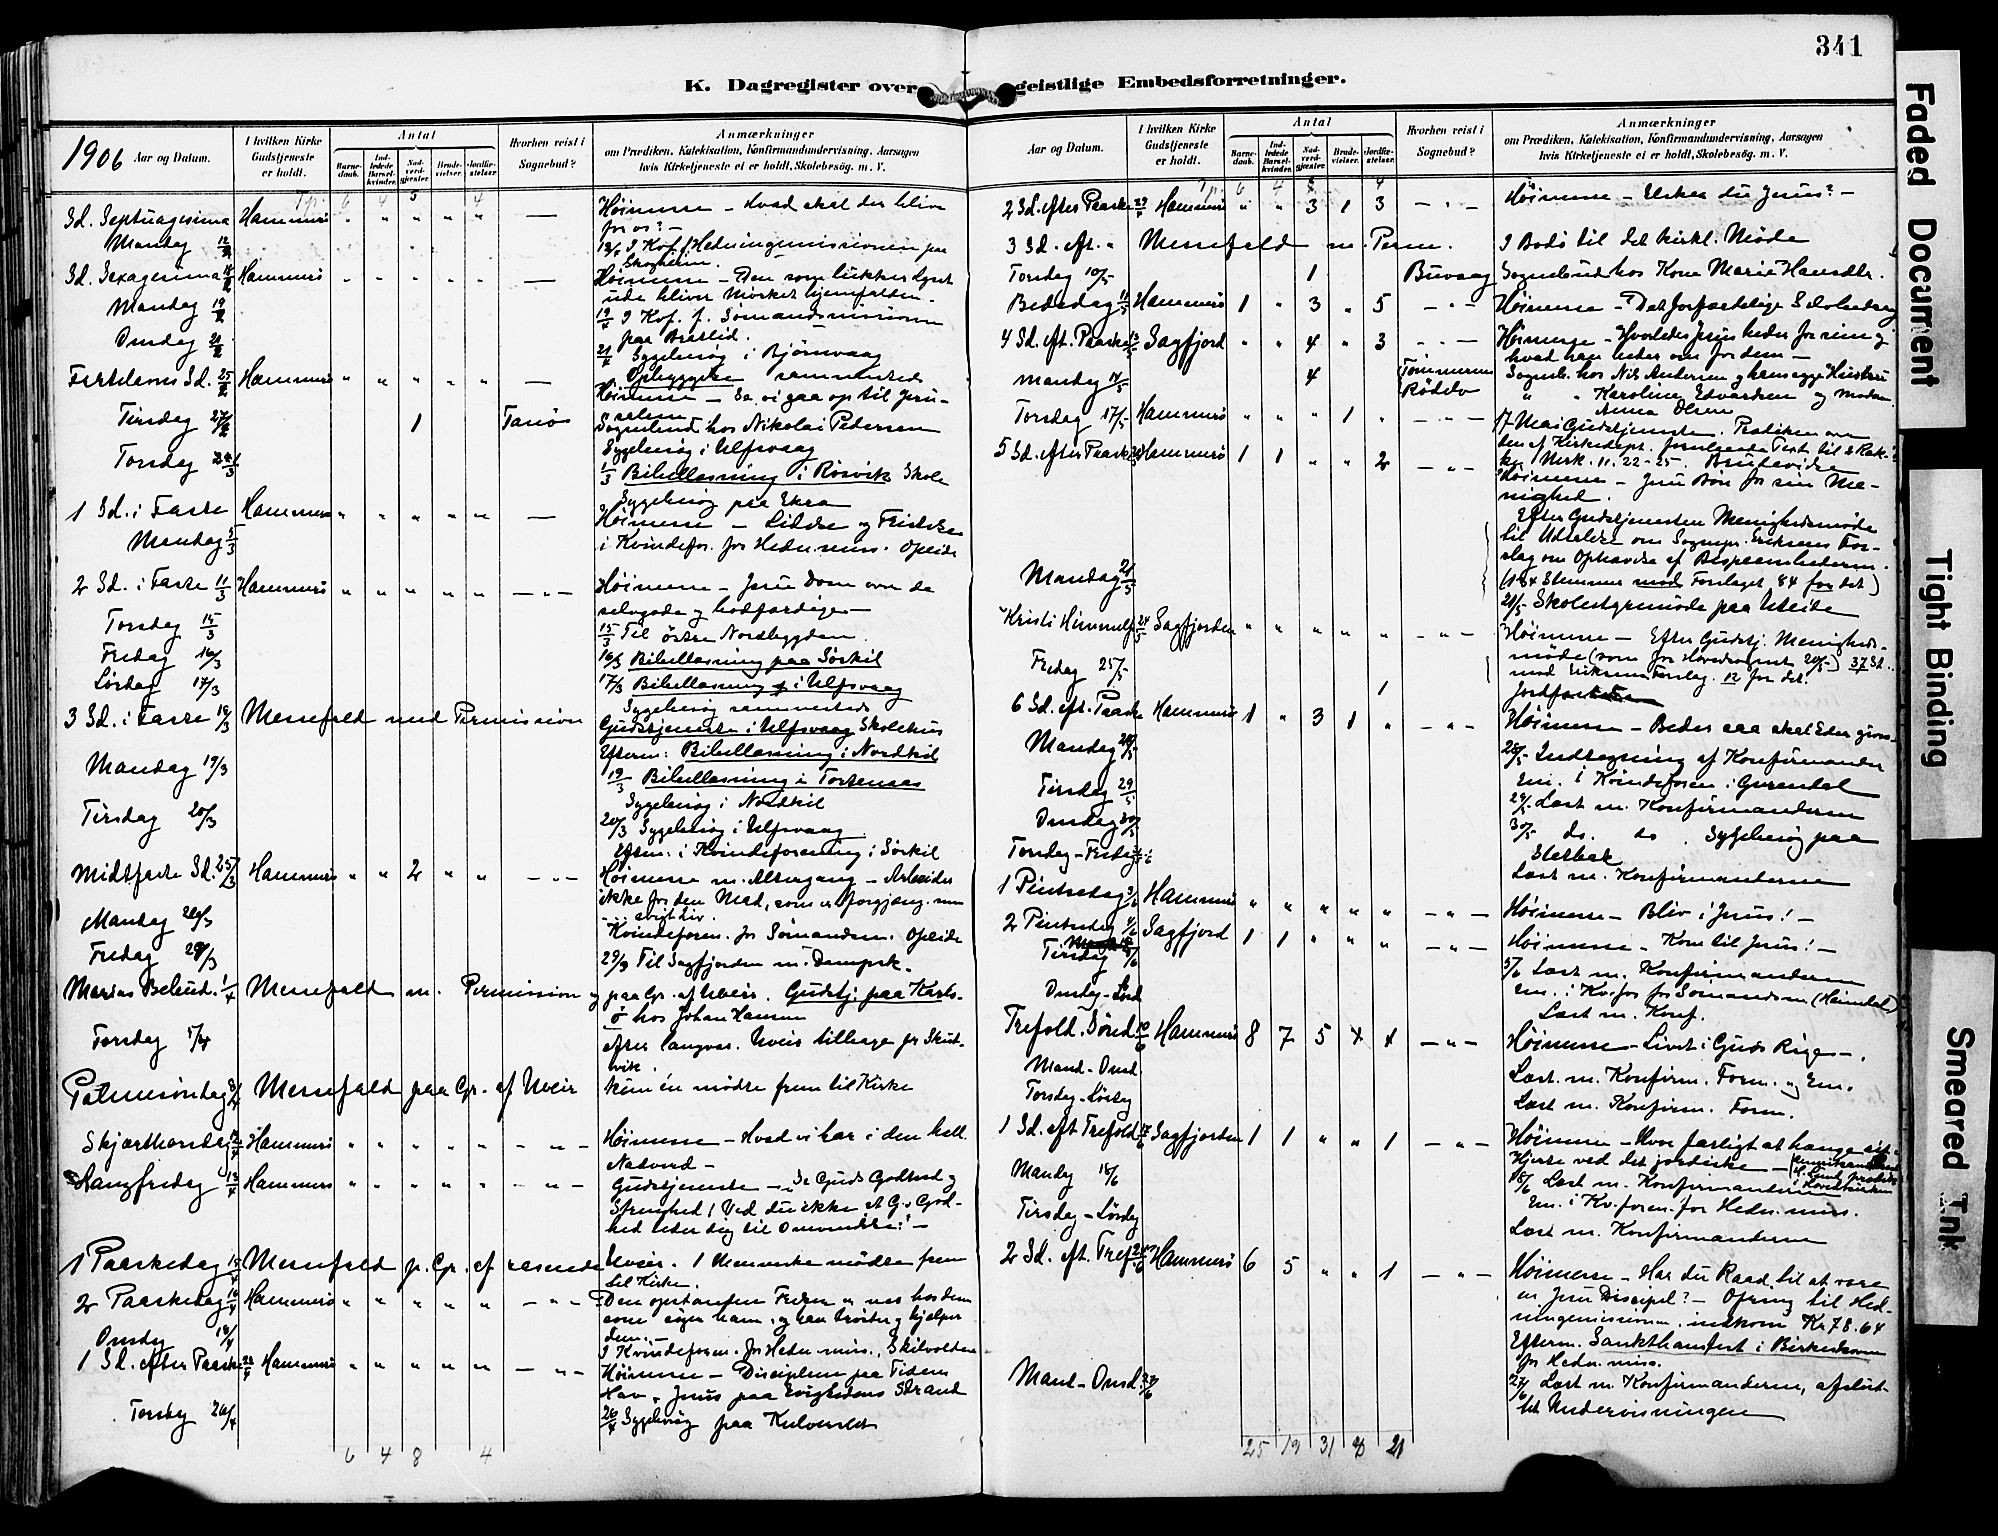 341
K. Dagregister over geistlige Embedsforretninger.
1906 Aar og Datum.
I hvilken Kirke Gudstjeneste er holdt.
Antal
Barne-daab.
Ind-ledede Barsel-kvinder.
Nad-verd-gjæster.
Brude-vielser.
Jordfæ-stelser.
Hvorhen reist i Sognebud?
Anmærkninger
om Prædiken, Katekisation, Konfirmandundervisning, Aarsagen
hvis Kirketjeneste ei er holdt, Skolebesøg. m. V.
Tp. 6 4 5 4
Sd. Septuagesima Hammerö " " " " " — Höimesse – Hvad skal der blive
for os? –
Mandag 12/2 12/2 I Kof. f. Hedningemissionen paa
Skogheim.
Sd. Sexagesima 18/2 Hammerö " " " " " — Höimesse – Den som lukker Lyset
ude bliver Mörket hjemfalden.
Mandag 19/2 19/2 I Kof. f. Sömandsmissionen
paa
Onsdag 21/2 21/2 Sygebesög i Björnvaag
Opbyggelse sammesteds
Fastelavns Sd. 25/2 Hammerö " " " " " — Höimesse – Se, vi gaa op til Jeru-
salem
Tirsdag 27/2 1 Tanö Sognebud hos Nikolai Pedersen
Sygebesög i Ulfsvaag
Torsdag 1/3 1/3 Bibellæsning i Rösvik Skole
Sygebesög paa
1 Sd. i Faste Hammerö " " " " " — Höimesse – Lidelse og Fristelse
Mandag 5/3 i Kvindefor. for Hedn. miss. Opeide
2 Sd. i Faste 11/3 Hammerö " " " " " – " – Höimesse – Jesu Dom over de
selvgode og hodfærdige –
Torsdag 15/3 15/3 Til östre Nordbygden.
Fredag 16/3 16/3 Bibellæsning paa Sörkil
Lördag 17/3 17/3 Bibellæsning i Ulfsvaag
Sygebesög sammesteds
3 Sd. i Faste 18/3 Messefald med Permission Gudstjeneste i Ulfsvaag Skolehus
Efterm: Bibellæsning i Nordkil
Mandag 19/3 19/3 Bibellæsning i Tortenaas
Sygebesög i Nordkil
Tirsdag 20/3 20/3 Sygebesög i Ulfsvaag
Efterm. i Kvindeforening i Sörkil
Midtfaste Sd. 25/3 Hammerö " " 2 " " – " – Höimesse m. Altergang – Arbeider
ikke for den Mad, som er forgjæng. men
evigt Liv.
Mandag 26/3 Kvindeforen. for Sömandsm. Opeide
Fredag 29/3 29/3 Til Sagfjorden m. Dampsk.
Marias Bebud. 1/4 Messefald m. Permission og paa Gr. af Uveir. Gudstj. paa Karls-
ö hos Johan Hansen
Torsdag 5/4 Efter langvar. Uveir tilbage fra Skut-
vik.
Palmesöndag 8/4 Messefald paa Gr. af Uveir kun én mödte frem til Kirke
Skjærthorsdag 12/4 Hammerö " " " " " – " – Höimesse – Hvad vi har i den hell.
Nadverd –
Langfredag 13/4 Hammerö " " " " " – " – Gudstjeneste – Se Guds Godhed og
Strenghed! Ved du ikke at G.s God-
hed leder dig til Omvendelse! –
1 Paaskedag 15/4 Messefald p. Gr. af rasende Uveir. 1 Menneske mödte frem
til Kirke.
2 Paaskedag 16/4 Hammerö " " " " " – " – Den opstandne Frelser er nær hos dem
som söger ham, og han tröster og hjelper
dem. –
Onsdag 18/4 I Kvindeforen. for Hedn. miss. Skilvolden
1 Sd. efter Paaske 22/4 Hammerö " " " " " – " – Höimesse – Disciplene paa Tidens
Hav, Jesus paa Evighedens Strand
Torsdag 26/4 26/4 Sygebesög paa
6 4 8 4
Aar og Datum.
I hvilken Kirke Gudstjeneste er holdt.
Antal
Barne-daab.
Ind-ledede Barsel-kvinder.
Nad-verd-gjæster.
Brude-vielser.
Jordfæ-stelser.
Hvorhen reist i Sognebud?
Anmærkninger
om Prædiken, Katekisation, Konfirmandundervisning, Aarsagen
hvis Kirketjeneste ei er holdt, Skolebesøg. m. V.
Tp. 6 4 8 4
2 Sd. efter Paaske 29/4 Hammerö " " 3 1 3 – " – Höimesse – Elsker du Jesus? –
3 Sd. eft. " Messefald m. Perm. I Bodö til det kirkl. Möde
Torsdag 10/5 1 Buvaag Sognebud hos Kone Marie Hansdtr.
Bededag 11/5 Hammerö 1 " 3 " 5 – " – Höimesse – Det forfærdelige
4 Sd. eft. Paaske 13/5 Sagfjord " " 4 " 3 – " – Höimesse – Hvorledes Jesus beder for sine og
hvad han beder om for dem –
Mandag 14/5 4 Tömmernes Sogneb. hos Nils Andersen og hans Hustru
" " Karoline Edvardsen og
Anna Olsen
Torsdag 17/5 Hammerö " " " 1 " 17 Mai Gudstjeneste. Prædiken over
den af Kirkedept. foreslaaede Text til 2 Ræk-
ke Mrk. 11. 22-25. Brudevielse
5 Sd. efter Paaske Hammerö 1 1 " " 2 – " – Höimesse – Jesu Bön for sin Me-
nighed.
Efter Gudstjenesten Menighedsmöde
til Udtalelse om Sognepr. Eriksens For-
slag om Ophævelse af
(184 Stemmer mod Forslaget 84 for det)
Mandag 21/5 21/5 Skolestyremöde paa Uteide
Kristi Himmelf. 24/5 Sagfjorden " " " " " – " – Höimesse – Efter Gudstj. Menigheds-
möde (som for Hovedsognet 20/5) 37 St.
mod Eriksens Forslag. 12 for det.
Fredag 25/5 1 Jordfæstelse
6 Sd. eft. Paaske Hammerö 1 " 3 1 " – " – Höimesse – Beder saa skal Eder gives –
Mandag 28/5 28/5 Indtegning af Konfirmander
Em. i Kvindeforen. i
Tirsdag 29/5 29/5 Læst m. Konfirmanderne
Onsdag 30/5 30/5 do. do. Sygebesög paa
Torsdag – Fredag Læst m. Konfirmanderne
1 Pintsedag 3/6 Hammerö " " " " " – " – Höimesse – Bliv i Jesus! –
2 Pintsedag 4/6 Sagfjord 1 1 " " " – " – Höimesse – Kom til Jesus! –
Tirsdag 5/6 5/6 Læst m. Konfirmanderne
Em. i Kv.for. for Sömandsm. (Heimdal)
Onsdag – Lörd Læst m. Konf.
Trefold. Sönd. 10/6 Hammerö 8 7 5 4 4 – " – Höimesse – Livet i Guds Rige –
Mand – Onsd Læst. m. Konfirm. Form. og Em.
Torsdag – Lördag Læst m. Konfirm. Form.
1 Sd. eft Trefold. 17/6 Sagfjorden 1 1 " " 1 – " – Höimesse – Hvor farligt at hænge sit
Hjerte ved det jordiske –
Mandag 18/6 18/6 Læst m. Konfirmanderne
Em. i Kv. foren. for Hedn. miss.
Tirsdag – Lördag Læst m. Konfirmanderne
2 Sd. eft. Tref. 24/6 Hammerö 6 5 " " 1 – " – Höimesse – Har du Raad til at være
en Jesu Discipel? – Ofring til Hed-
ningemissionen, indkom Kr 78.64
Efterm. Sankthansfest i
for Hedn. miss.
Mand – Onsd. 27/6 27/6 Læst m. Konfirmanderne, afslut-
tet Undervisningen
25 19 31 8 21
Faded Document
Tight Binding
Smeared Ink